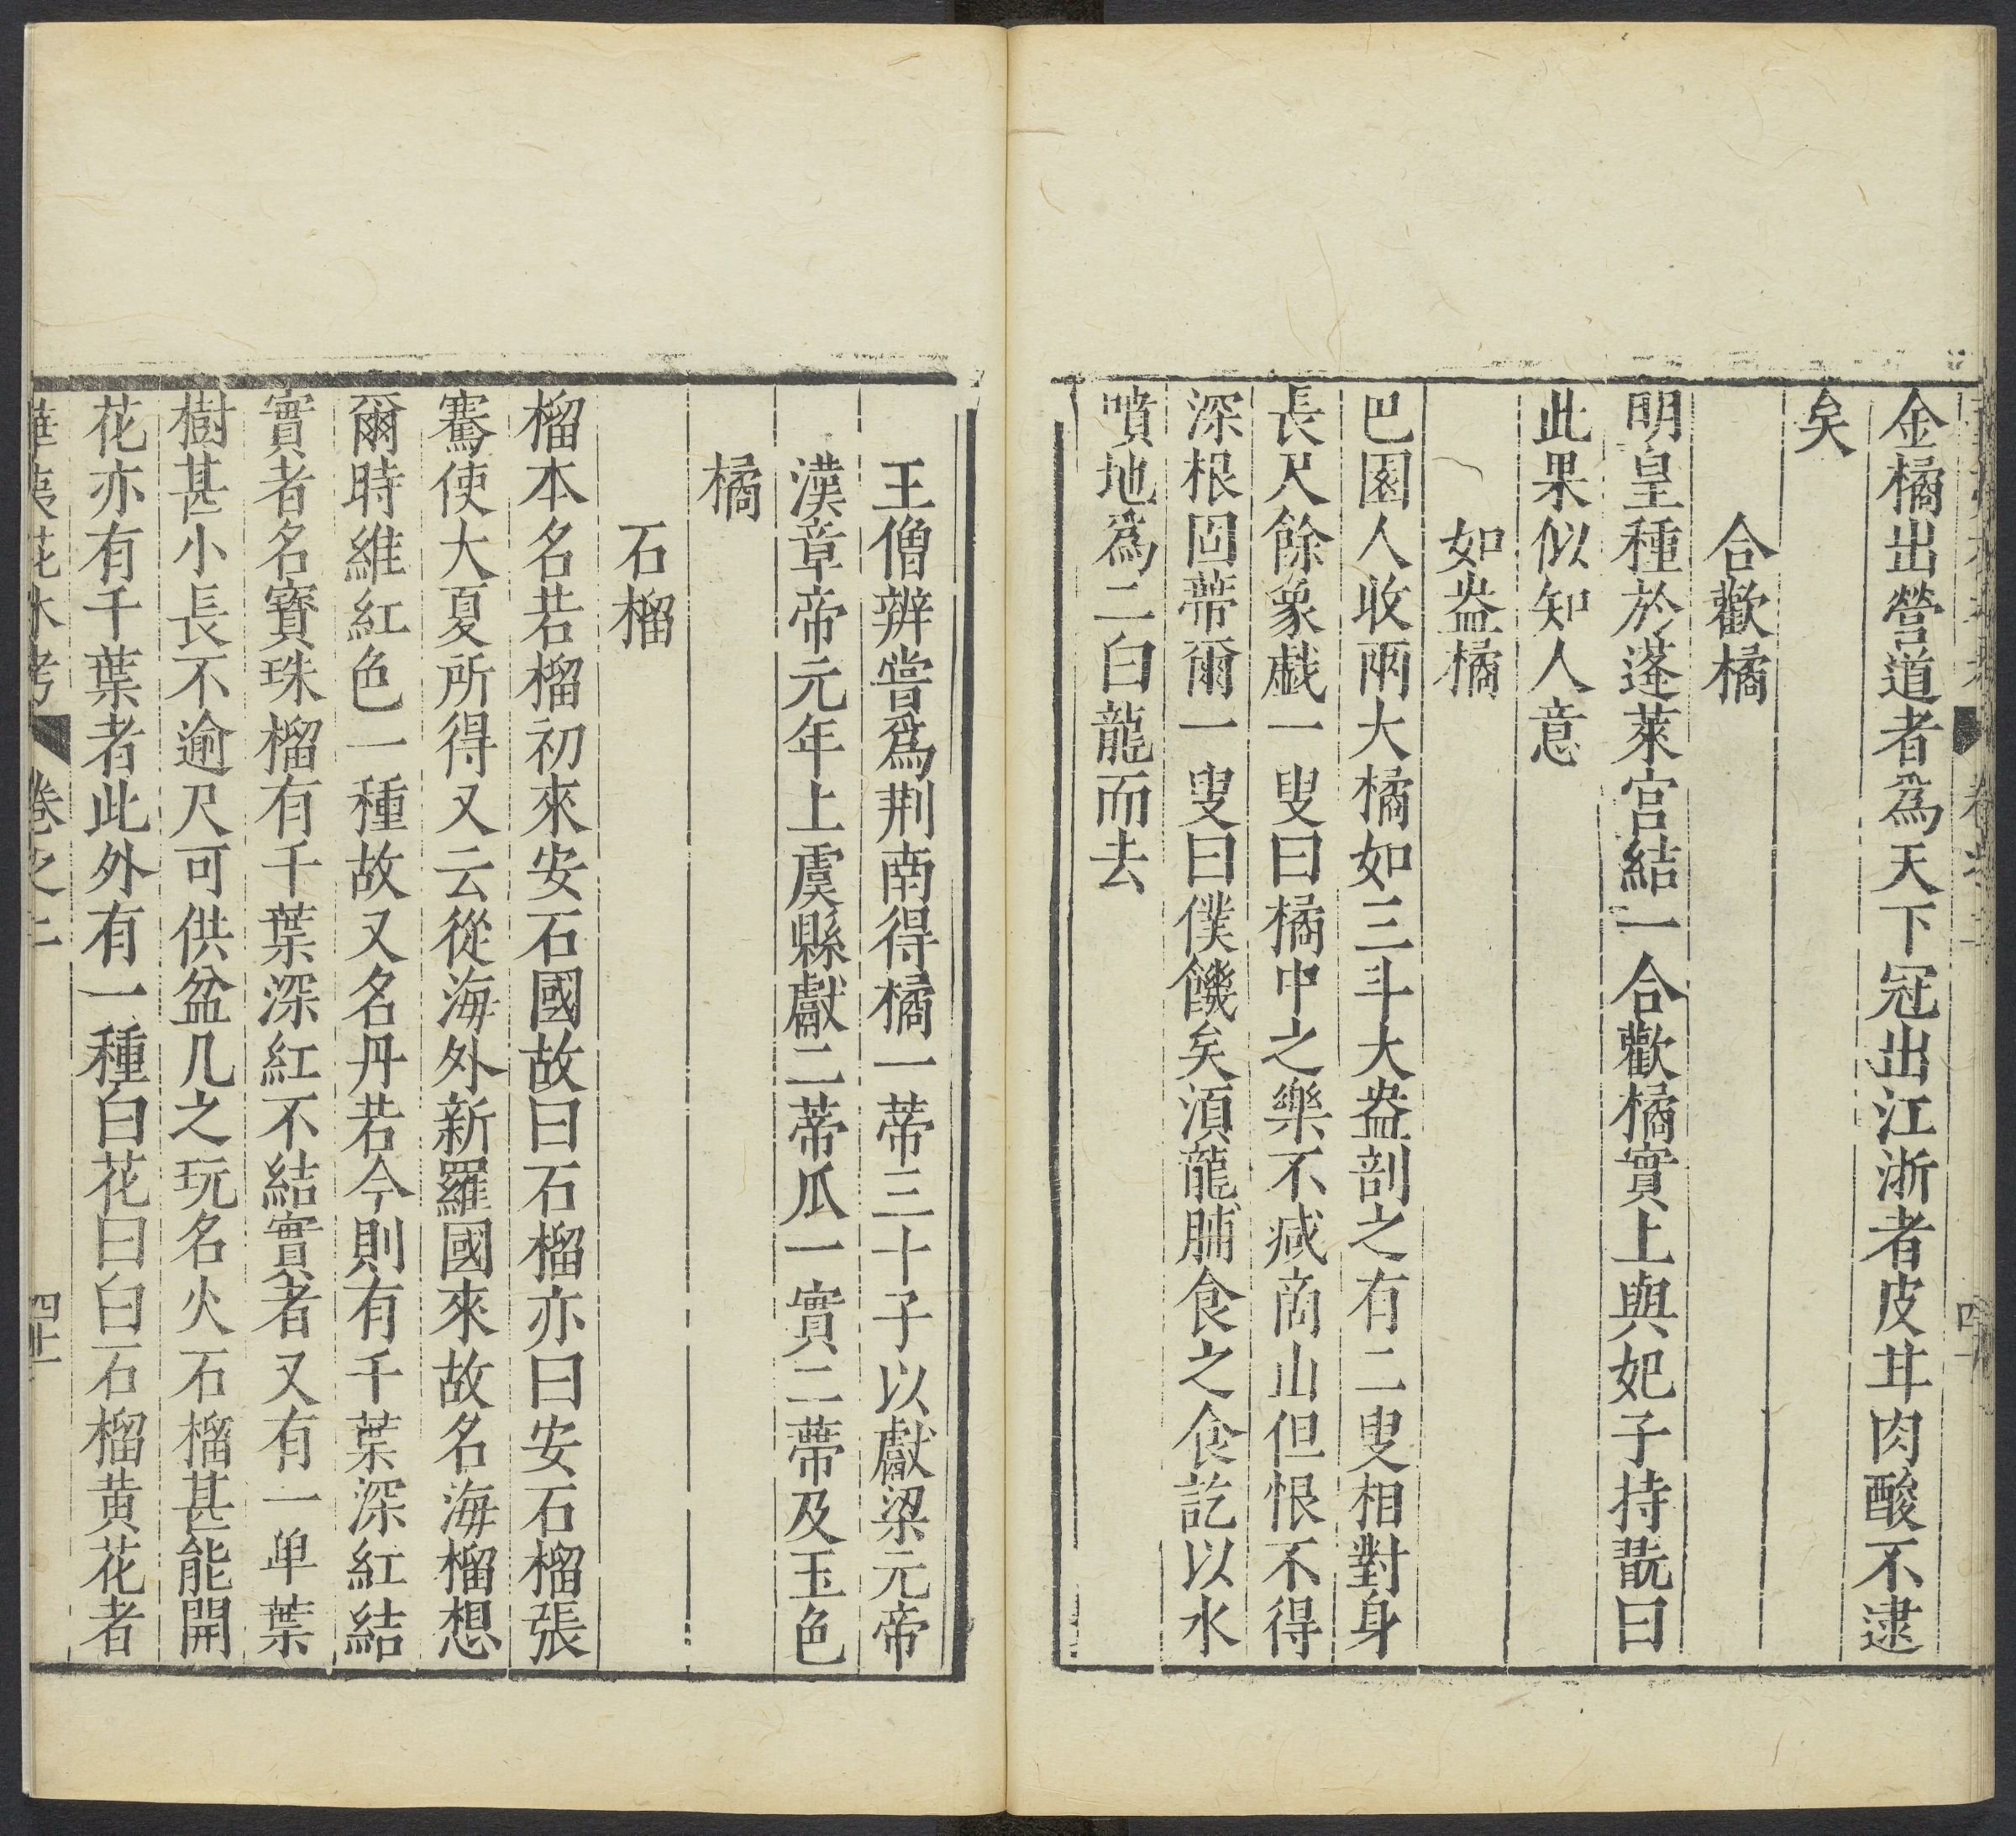 金橘出營道者爲天下冠出江浙者皮甘肉酸不逮
矣
合歡橘
明皇種於蓬萊宮結一合歡橘實上與妃子持翫曰
此果似知人意
如盎橘
巴園人收兩大橘如三斗大盎剖之有二叟相對身
長尺餘象戲一叟曰橘中之樂不減商山但恨不得
深根固蔕爾一叟曰僕饑矣湏龍脯食之食訖以水
噴地爲二白龍而去
王僧辨嘗爲荆南得橘一蒂三十子以獻梁元帝
漢章帝元年上虞縣獻二蒂瓜一實二蔕及玉色
橘
石榴
榴本名若榴初來安石國故曰石榴亦曰安石榴張
騫使大夏所得又云從海外新羅國來故名海榴想
爾時維紅色一種故又名丹若今則有千葉深紅結
實者名寶珠榴有千葉深紅不結實者又有一单葉
樹甚小長不逾尺可供盆几之玩名火石榴甚能開
花亦有千葉者此外有一種白花曰白石榴黄花者
華夷花木考 卷之二 四十二